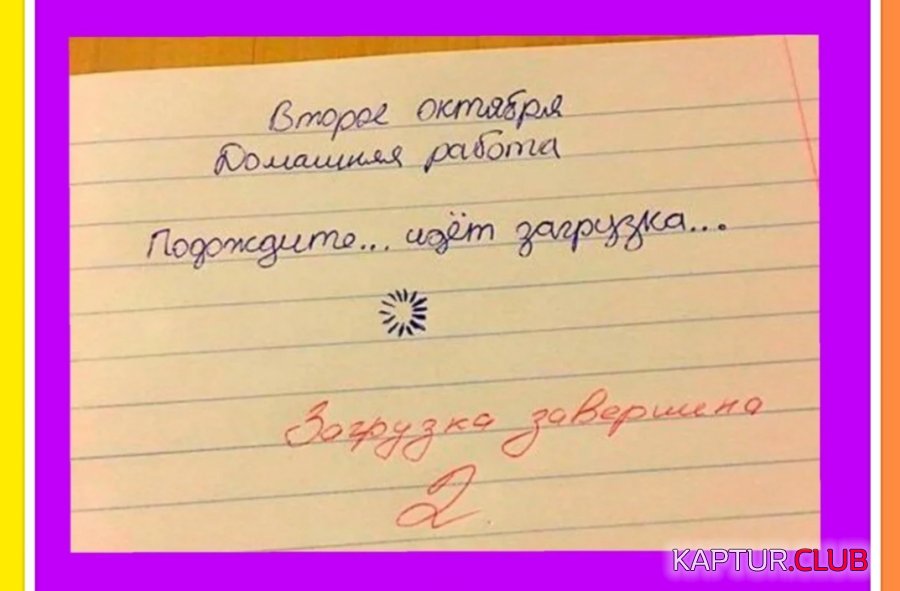 Второе октября
Домашняя работа
Подождите... идёт загрузка...
Загрузка завершена
2
KAPTUR.CLUB